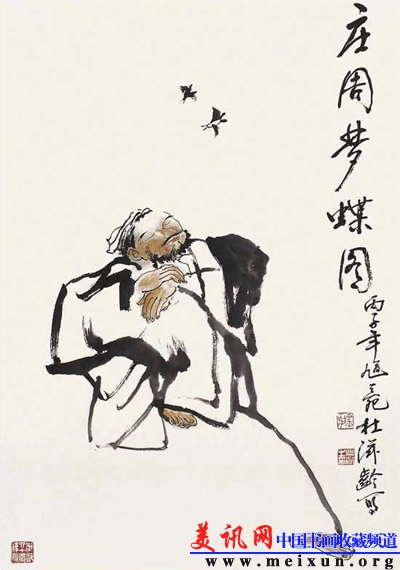 庄周梦蝶图
丙子年 杜滋齡写
美讯网 中国书画收藏频道
www.meixun.org